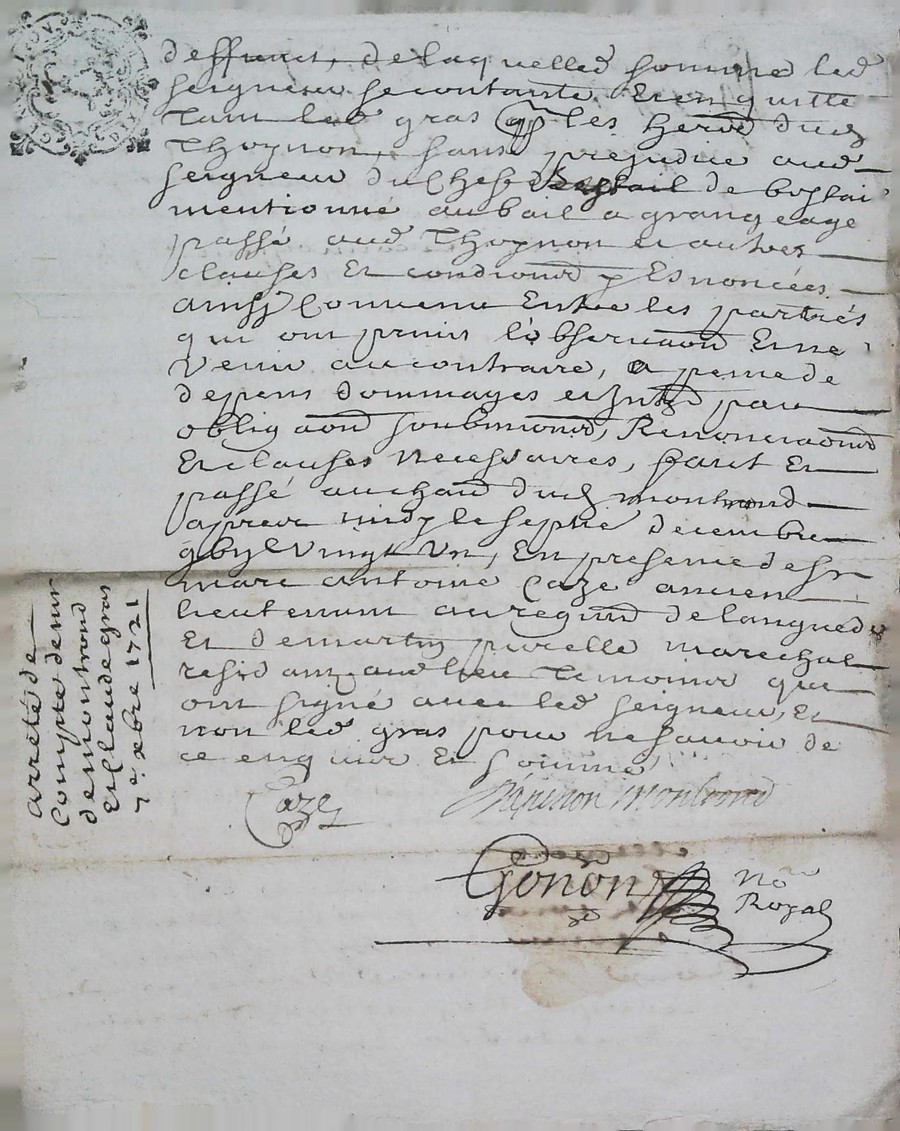 deffunt, de laquelled somme led
seigneur se contante Et en quitte
Tant led gras q les herds dud
Thoynon, sans prejudice aud
seigneur du Chef de bestail
mentionné au bail a grangeage
passé aud Thoynon et autres
clauses Et condions y Esnoncées
ainsy Convenu Entre les partiës
qui ont pmis l'observaōn Et ne
venir au contraire, a peine de
depens dommages et Intz par
obligaōn soubmiond, Renonciaōnd
Et clauses necessaires, fait Et
passé au chaū dud montrond
apres midy le septie decembre
gbyc vingt Un, En presence de sr
marc antoine Caze ancien
lieutenant au regimd de langued
Et de martin purelle marechal
residant aud lieu temoins qui
ont signé avec led seigneur, Et
non led gras pour ne savoir de
ce enquis Et sommé,
Caze
montrond
Gonon
No
Royal
arrété de
Compte de mr
de montrond
Et Claude gras
7e. xbre 1721